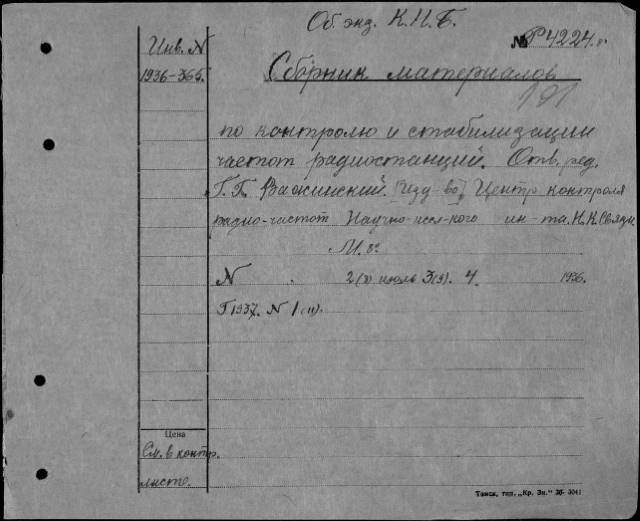 Об. экз. К.Н.Б.
Инв. N
№ Р4224.
1936-365.
Сборник материалов
191
по контролю и стабилизации
частот радиостанций. Отв. ред.
Г.Г. Важинский. [Изд-во] Центр контроля
радио-частот Научно-иссл-кого ин-та. Н.К.Связи.
М. 8°
N 2(8) июль 3(9). 4 1936.
Г1937. N 1(11).
Цена
См. в контр.
листе.
Томск, тип. „Кр. Зн." 36-3041